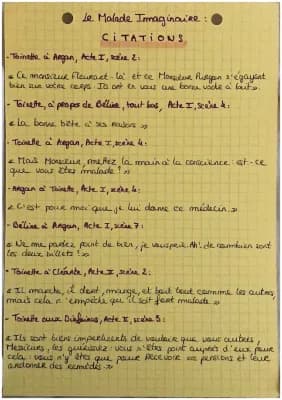 Le Malade Imaginaire :
CITATIONS
- Toinette à Argan, Acte I, scène 2:
« Ce monsieur Fleurant-là et ce Monsieur Purgon s'égayent
bien sur votre corps. Ils ont en vous une bonne vache à lait ».
- Toinette, à propos de Béline, tout bas, Acte I, scène 4:
« La bonne bête a ses raisons »
- Toinette à Argan, Acte I, scène 4:
« Mais Monsieur, mettez la main à la conscience: est-ce
que vous êtes malade ! »
- Argan à Toinette, Acte I, scène 4:
« C'est pour moi que je lui donne ce médecin. »
- Béline à Argan, Acte I, scène 7:
« Ne me parlez point de bien, je vous prie. Ah! de combien sont
les deux billets ! »
- Toinette à Cléante, Acte II, scène 2:
« Il marche, il dort, mange, et boit tout comme les autres,
mais cela n'empêche qu'il soit fort malade. »
- Toinette aux Diafoirus, Acte II, scène 5:
« Ils sont bien impertinents de vouloir que vous autres,
Messieurs, les guérissiez: vous n'êtes point auprès d'eux pour
cela: vous n'y êtes que pour recevoir vos pensions et leur
ordonner des remèdes. »